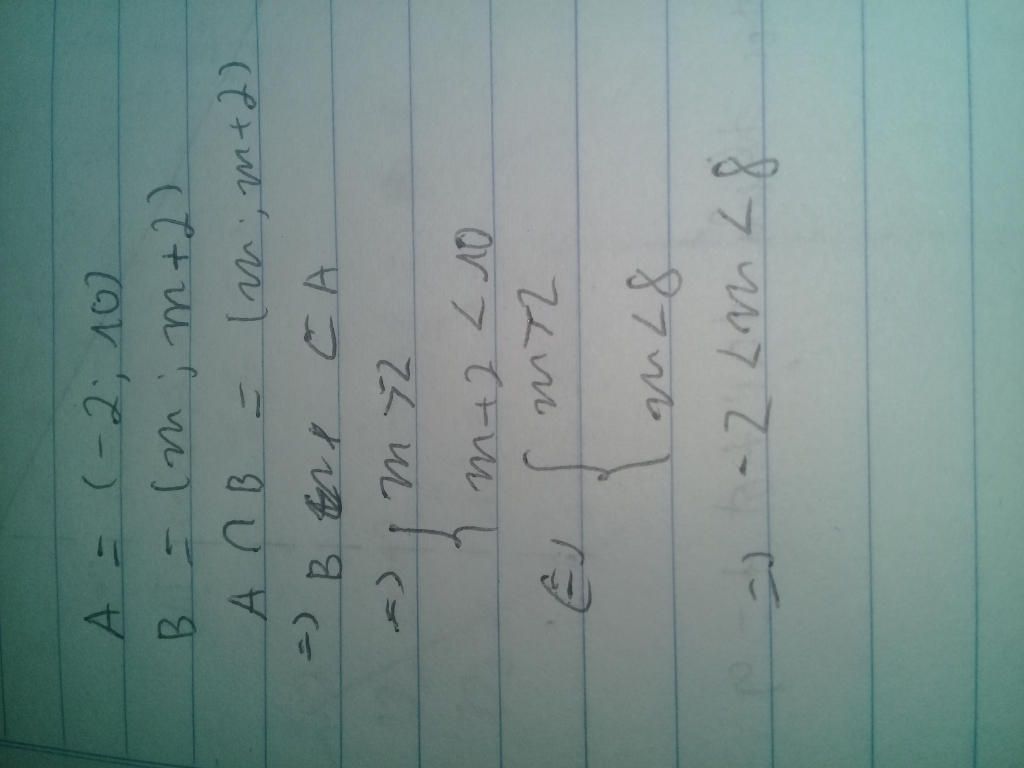 A = (-2; 10)
B = (m; m+2)
A ∩ B = (m; m+2)
=> B ⊂ A
=> { m > 2
m+2 < 10
<=> { m > 2
m < 8
=> -2 < m < 8